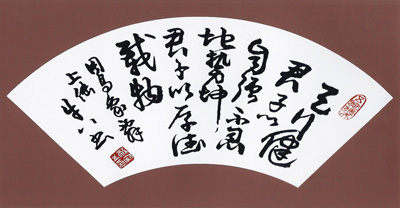 天行健
君子以
自强不息
地势坤
君子以厚德
载物
周易象辞